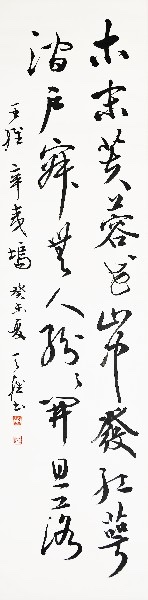 木末芙蓉花山中發紅萼
澗戶寂無人紛々開且落
王維 辛夷塢 癸未夏 書